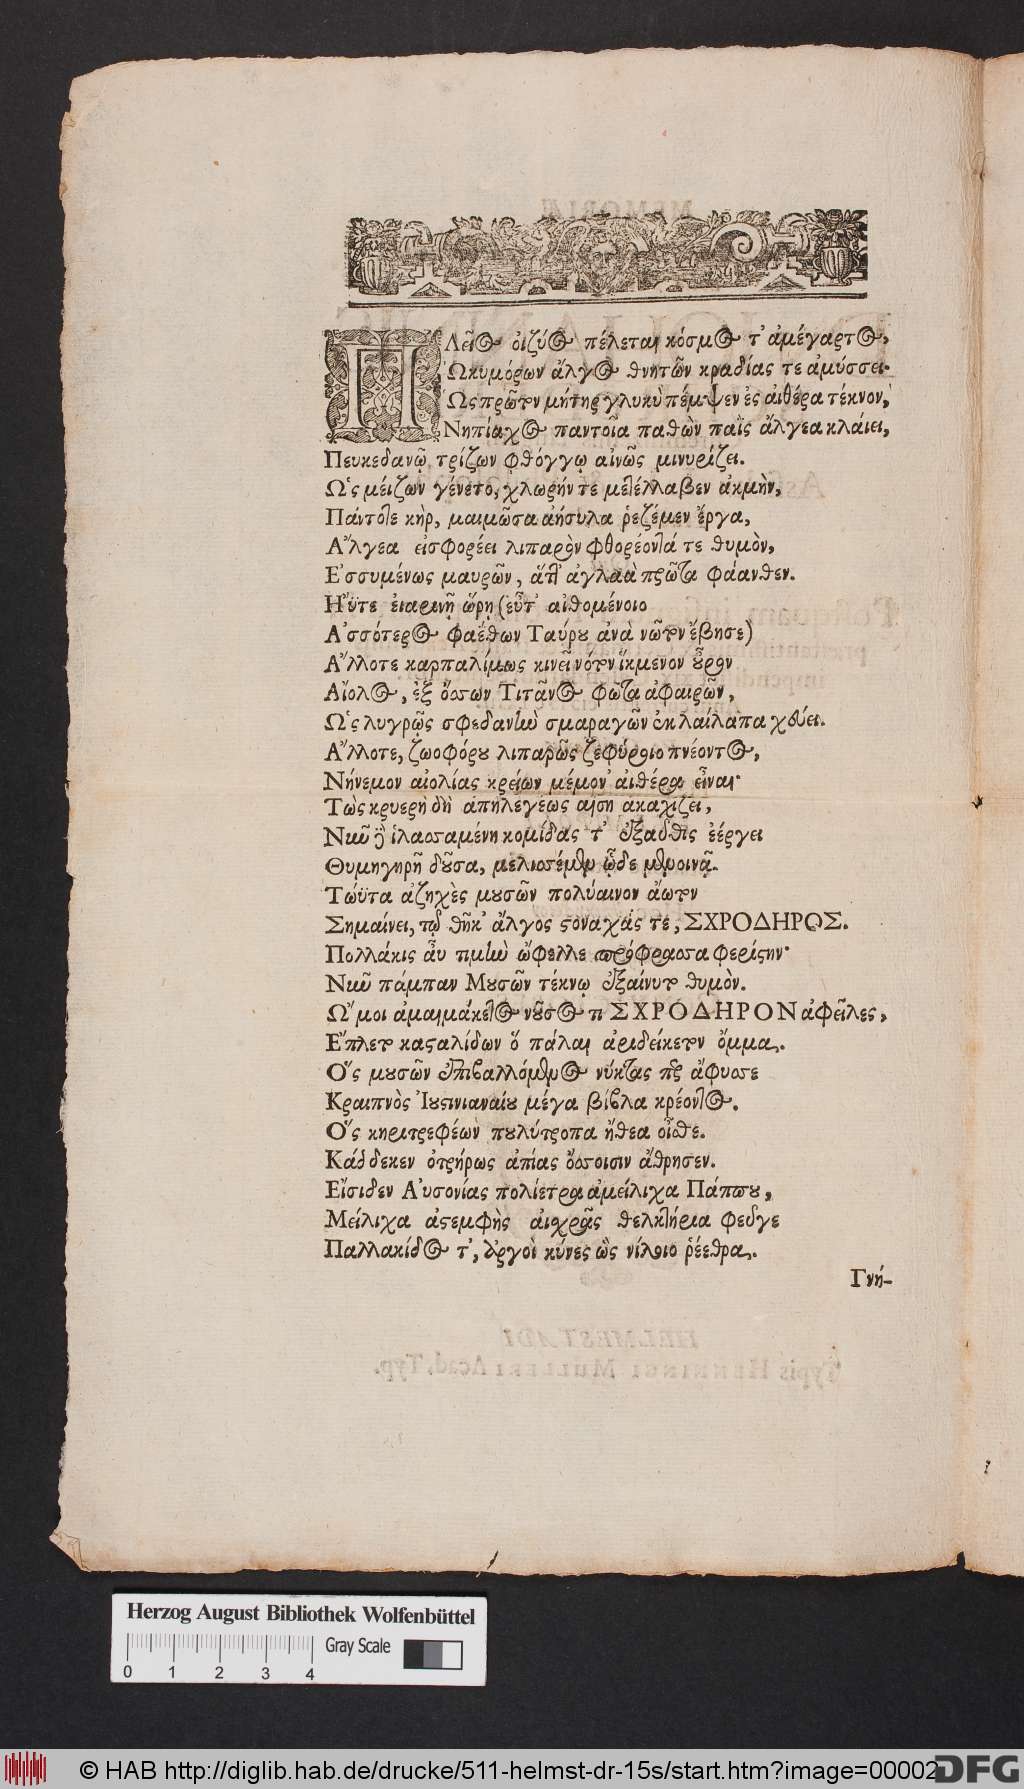 ΠΛεῖος ὀϊζύος πέλεται κόσμος τ' ἀμέγαρτος,
Ὠκυμόρων ἄλγος θνητῶν κραδίας τε ἀμύσσει.
Ὡς πρῶτον μήτηρ γλυκὺ πέμψεν ἐς αἰθέρα τέκνον,
Νηπίαχος παντοῖα παθὼν παῖς ἄλγεα κλάιει,
Πευκεδανῷ τρίζων φθόγγῳ αἰνῶς μινυρίζει.
Ὡς μείζων γένετο, χλωρήν τε μετέλλαβεν ἀκμὴν,
Πάντοτε κὴρ, μαιμῶσα ἀήσυλα ῥεζέμεν ἔργα,
Ἄλγεα εἰσφορέει λιπαρὸν φθορέοντά τε θυμὸν,
Ἐσσυμένως μαυρῶν, ἅττ' ἀγλαὰ πρῶτα φάανθεν.
Ἠΰτε ἐιαρινῇ ὥρῃ (εὖτ' αἰθομένοιο
Ἀσσότερος φαέθων Ταύρου ἀνὰ νῶτον ἔβησε)
Ἄλλοτε καρπαλίμως κινεῖ νότον ἴκμενον οὖρον
Αἴολος, ἐξ ὄσσων Τιτᾶνος φῶτα ἀφαιρῶν,
Ὡς λυγρῶς σφεδανὴν σμαραγῶν ἐκ λαίλαπα χεύει.
Ἄλλοτε, ζωοφόρου λιπαρῶς ζεφύροιο πνέοντος,
Νήνεμον αἰολίας κρείων μέμον' αἰθέρα εἶναι·
Τὼς κρυερὴ δὴ ἀπηλεγέως αἴση ἀκαχίζει,
Νῦν γὸ ἱλασσαμένη κομίδας τ' ἐξαῦθις ἐέργει
Θυμηγηρῆ δοῦσα, μελισσέμεν ᾧδε μενοινᾷ.
Τώϋτα ἀζηχὲς μουσῶν πολύαινον ἄωτον
Σημαίνει, τῷ θῆκ' ἄλγος στοναχάς τε, ΣΧΡΟΔΗΡΟΣ.
Πολλάκις αὖ τιμὴν ὤφελλε πρόφρασσα φερίστην·
Νῦν πάμπαν Μουσῶν τέκνῳ ἐξαίνυτο θυμὸν.
Ὤ μοι ἀμαιμάκετος νοῦσος τι ΣΧΡΟΔΗΡΟΝ ἀφεῖλες,
Ἔπλετο κασταλίδων ὅ πάλαι ἀριδείκετον ὄμμα.
Ὅς μουσῶν ἐπιβαλλόμενος νύκτας περ ἄφυσσε
Κραιπνὸς Ἰουστινιαναίου μέγα βίβλα κρέοντος.
Ὅς κηριτρεφέων πουλύτροπα ἤθεα οἶσθε.
Κάδδεκεν ὀτρήρως ἀπίας ὄσσοισιν ἄθρησεν.
Εἴσιδεν Αὐσονίας πολίετρα ἀμείλιχα Πάππου,
Μείλιχα ἀστεμφὴς αἰσχρᾶς θελκτήρια φεῦγε
Παλλακίδος τ', ἀργοὶ κύνες ὣς νίλοιο ῥέεθρα.
Γνή-
Herzog August Bibliothek Wolfenbüttel
Gray Scale
0 1 2 3 4
© HAB http://diglib.hab.de/drucke/511-helmst-dr-15s/start.htm?image=00002
DFG